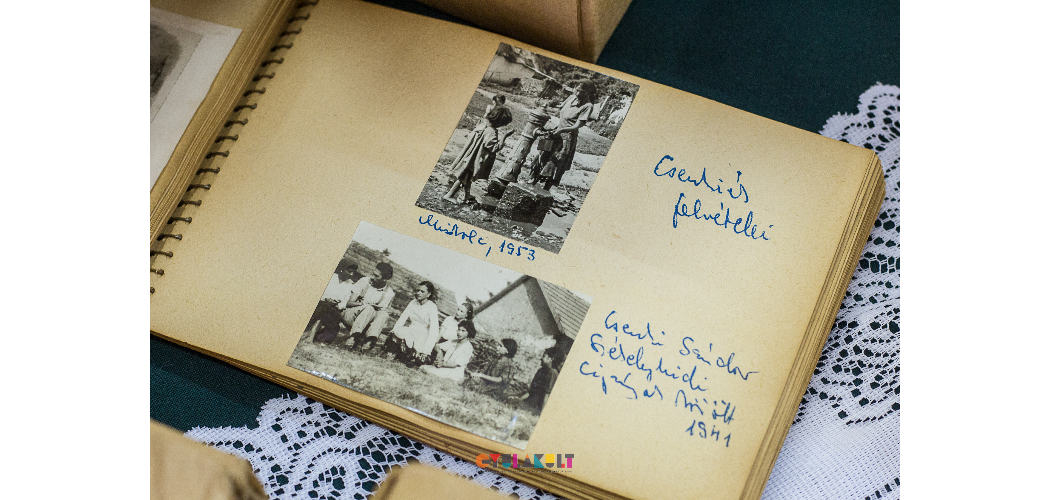 Csenki és
felvételei
Miskolc, 1953
Csenki Sándor
Székelyhidi
cigányok között
1941
CTRLAKULT